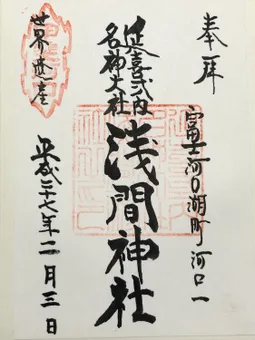 奉拝
富士河口湖町河口一
延喜式内
名神大社
浅間神社
世界遺産
平成二十七年二月三日